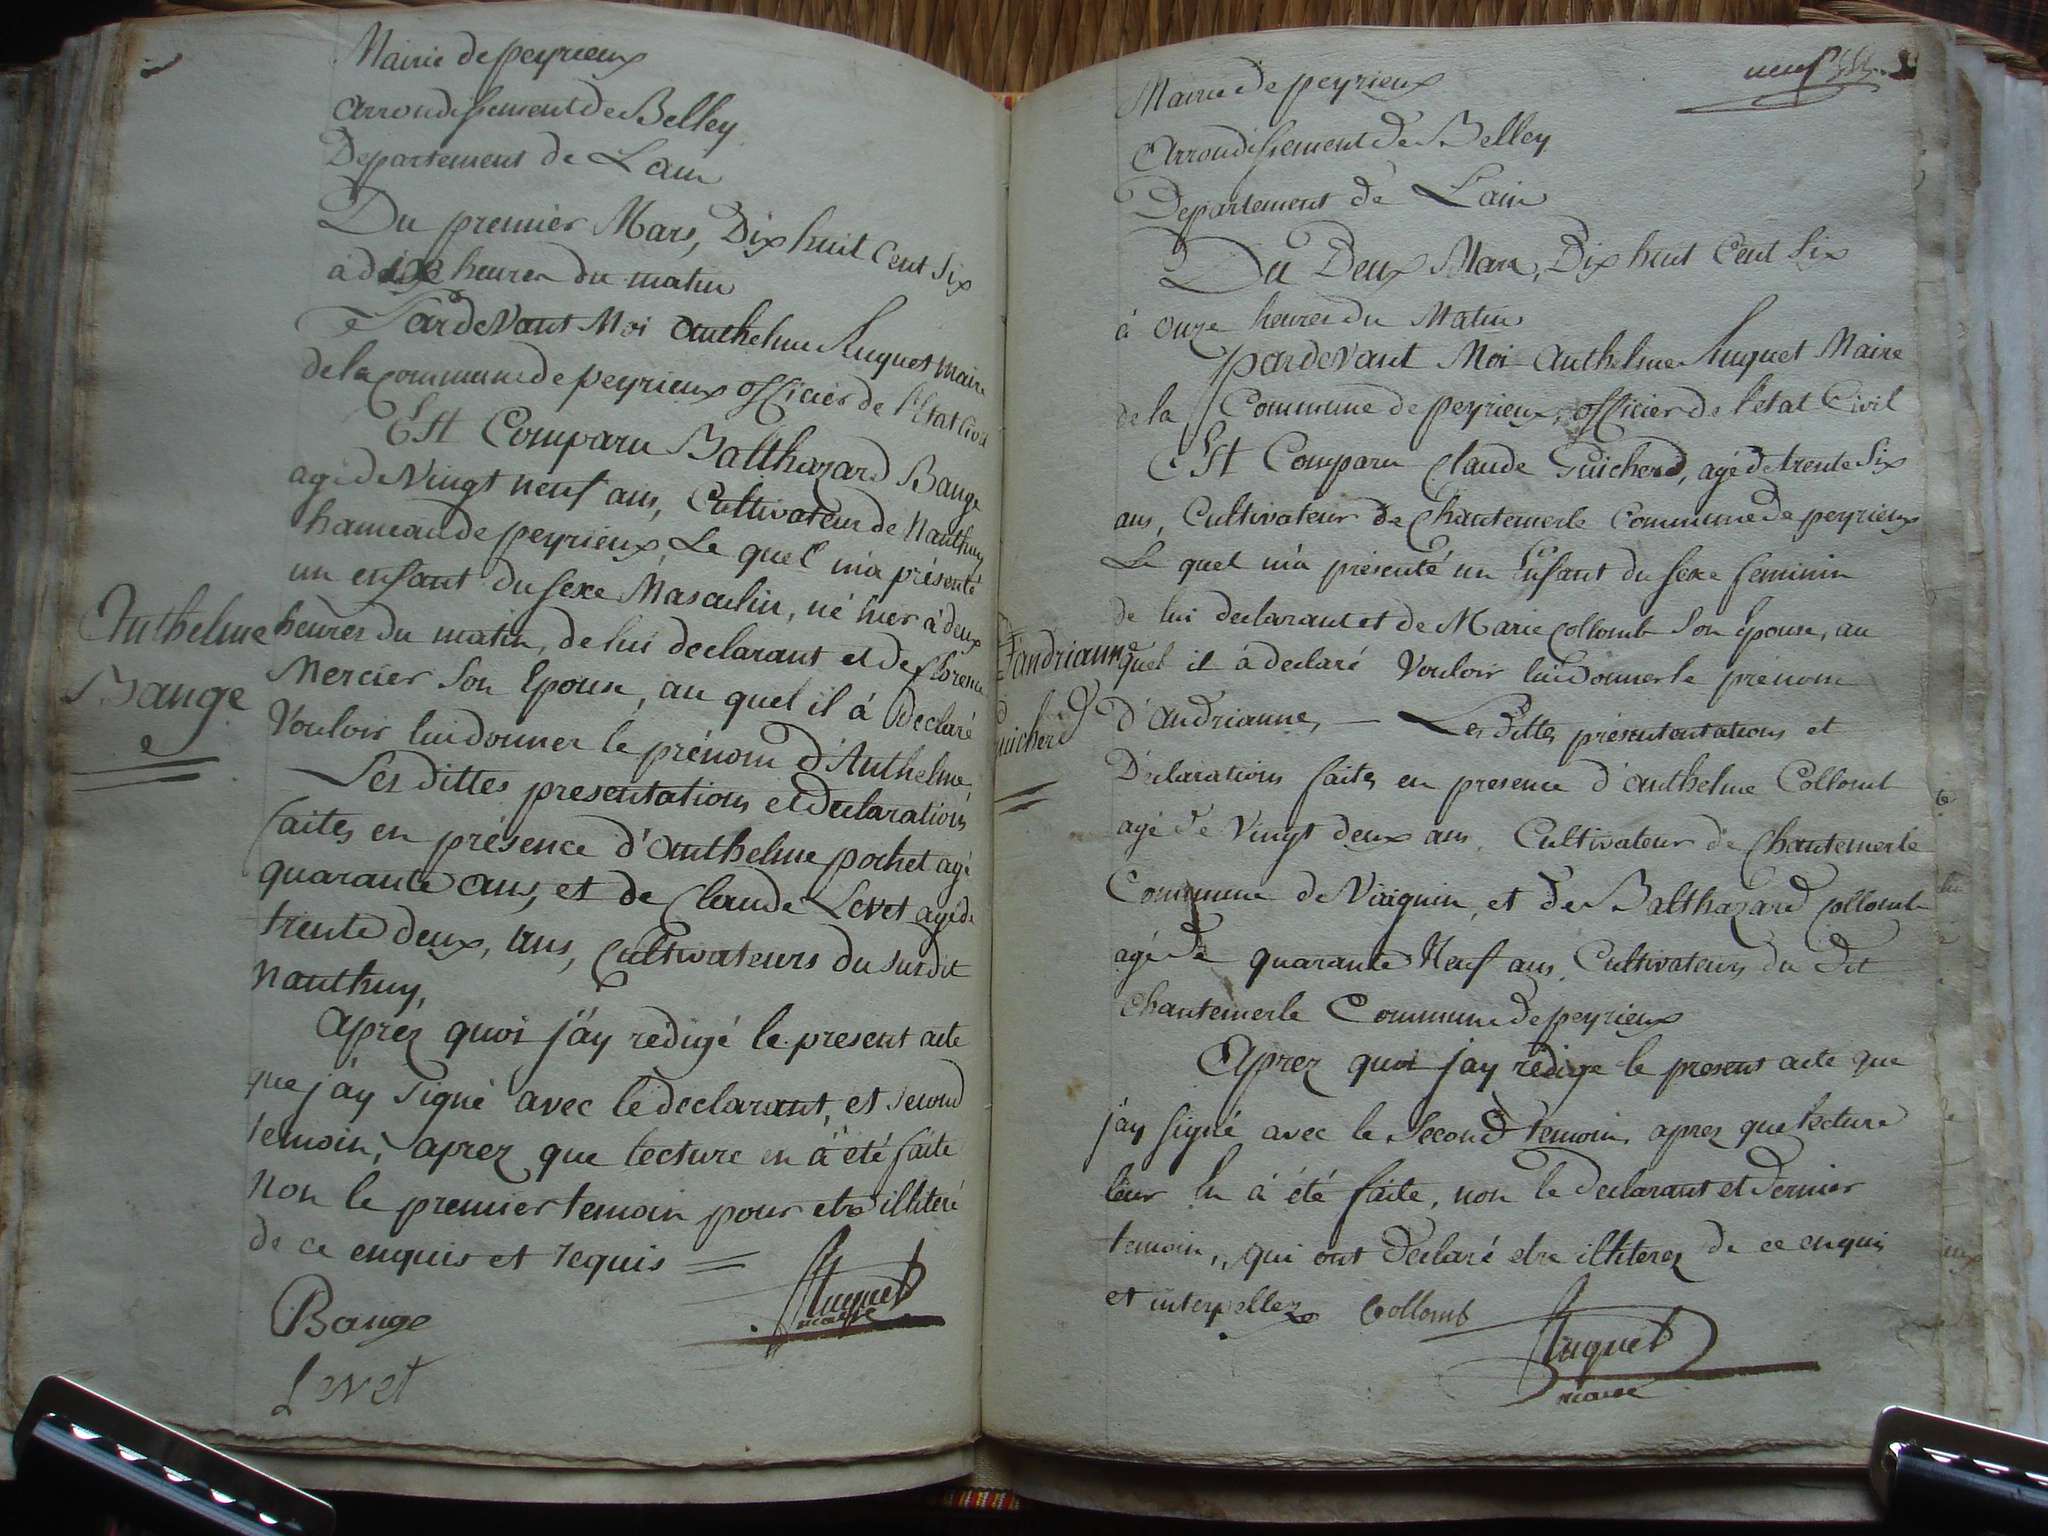 Mairie de peyrieux
Arrondissement de Belley
Departement de Lain
Du premier Mars, Dix huit Cent Six
à dix heures du matin
Pardevant Moi Anthelme Huguet maire
de la commune de peyrieux officier de l'Etat Civil
Est Comparu Balthazard Bange
agé de Vingt neuf ans, Cultivateur de Nanthuy
hameau de peyrieux, Le quel m'a présenté
un enfant du sexe Masculin, né hier à deux
heures du matin, de lui declarant et de florence
Mercier Son Epouse, au quel il à Declaré
Vouloir lui donner le prénom d'Anthelme,
Les dittes presentations et declarations
faites en présence d'anthelme pochet agé
quarante ans, et de Claude Levet agé de
trente deux, ans, Cultivateurs du susdit
Nanthuy,
Aprés quoi j'ay rédigé le present acte
que j'ay Signé avec le declarant, et second
temoin, aprez que lecture en à été faite
Non le premier temoin pour etre illiteré
de ce enquis et requis =
Anthelme
Bange
Bange
Levet
Huguet
maire
neuf
Mairie de peyrieux
Arrondissement de Belley
Departement de Lain
Du Deux Mars, Dix huit Cent Six
à onze heures du Matin
pardevant Moi Anthelme Huguet Maire
de la Commune de peyrieux, officier de l'etat Civil
Est Comparu Claude Guicherd, agé de trente Six
ans, Cultivateur de Chantemerle Commune de peyrieux
Le quel m'a présenté un Enfant du sexe feminin
de lui declarant et de Marie Collomb Son Epouse, au
quel il à declaré Vouloir lui Donner le prénom
D'andrianne, — Les Dittes présentations et
Déclarations faites en presence d'anthelme Collomb
agé de Vingt deux ans, Cultivateur de Chantemerle
Commune de et de Balthazard Collomb
agé de quarante Neuf ans, Cultivateurs du Dit
Chantemerle Commune de peyrieux
Aprez quoi j'ay rédigé le present acte que
j'ay signé avec le Second temoin, aprez que lecture
leur En à été faite, non le declarant et dernier
temoin, qui ont declaré etre illiterez de ce enquis
et interpellez
D'andrianne
Guicherd
Collomb
Huguet
maire